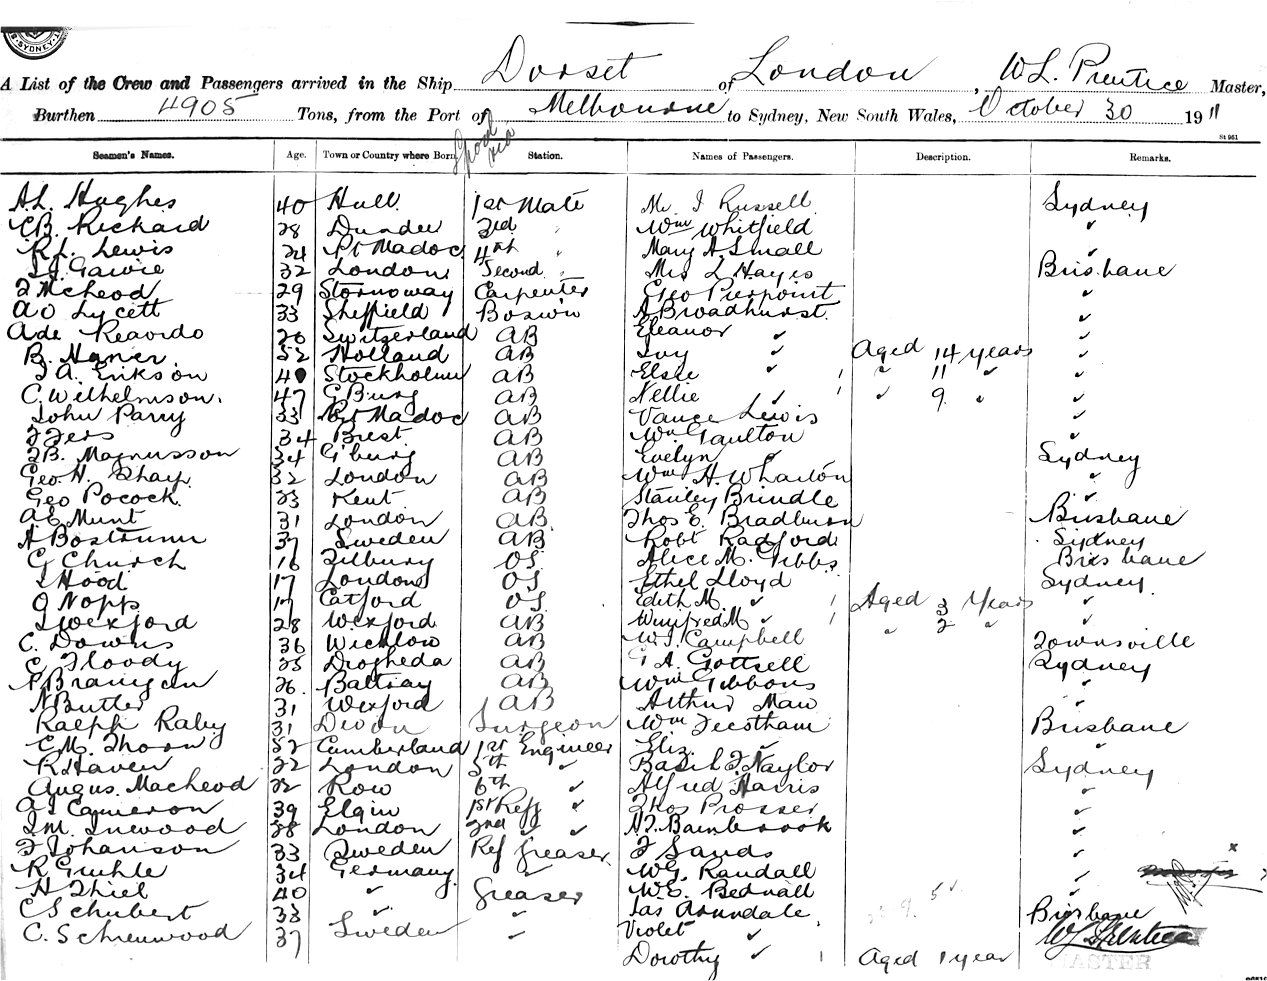 SYDNEY
A List of the Crew and Passengers arrived in the Ship Dorset of London, W L. Prentice Master,
Burthen 4905 Tons, from the Port of Melbourne to Sydney, New South Wales, October 30 1911
St 961
Seamen's Names. Age. Town or Country where Born Station. Names of Passengers. Description. Remarks.
A.L. Hughes 40 Hull 1st Mate Mr. J Russell Sydney
C B. Rickard 28 Dundee 3rd " Wm Whitfield "
R.L. Lewis 24 Pt Madoc 4th " Mary A Small "
Gawie 32 London Second " Mrs L Hayes Brisbane
McLeod 29 Stornoway Carpenter Geo Pierpoint "
A O Lycett 33 Sheffield Boswn A Broadhurst "
Ade Reavido 26 Switzerland AB Eleanor " "
B. Haner 52 Holland AB Ivy " Aged 14 years "
J A. Erikson 40 Stockholm AB Elsie " " 11 " "
C. Wilhelmson 47 G Burg AB Nellie " " 9 " "
John Parry 33 Pt Madoc AB Vance Lewis "
34 Brest AB Wm Gaulton "
J B. Magnusson 34 G'burg AB Evelyn " Sydney
Geo. H. Sharp 32 London AB Wm H. Wharton "
Geo Pocock 23 Kent AB Stanley Brindle "
A E Munt 31 London AB. Thos E. Bradburn Brisbane
A Bostrum 37 Sweden AB Robt Radford Sydney
G Church 16 Tilbury OS. Alice M. Gibbs Brisbane
Hood 17 London OS Ethel Lloyd Sydney
Nopps 17 Catford OS Edith M. " Aged 3 Years "
J Wexford 28 Wexford AB Winifred M " " 2 " "
C. Downs 36 Wicklow AB W J. Campbell Townsville
C Floody 25 Drogheda AB G A. Gottsell Sydney
P Branigan 26 Baltray AB Wm Gibbons "
N Butler 31 Wexford AB Arthur Maw "
Ralph Raby 31 Devon Surgeon Wm Feestham Brisbane
C M. Thorn 52 Cumberland 1st Engineer Eliz. " "
R Haven 22 London 5th " Basil J Naylor Sydney
Angus Macleod 22 Row 6th " Alfred Harris "
A J Cameron 39 Elgin 1st Refg " Thos Prosser "
J M. Inwood 28 London 2nd " " A J. Bambrook "
J Johanson 33 Sweden Ref Greaser J Sands "
R Guhle 34 Germany " W G. Randall "
H Thiel 40 " Greaser W E. Bednall "
C Schubert 38 " " Jas Arundale Brisbane
C. Schrenwood 37 Sweden " Violet "
W L Prentice
Dorothy " Aged 1 year
MASTER